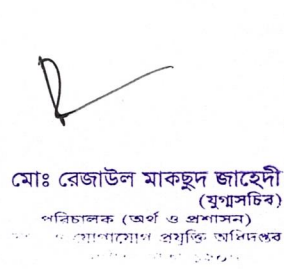 মোঃ রেজাউল মাকছুদ জাহেদী
(যুগ্মসচিব)
পরিচালক (অর্থ ও প্রশাসন)
ও যোগাযোগ প্রযুক্তি অধিদপ্তর